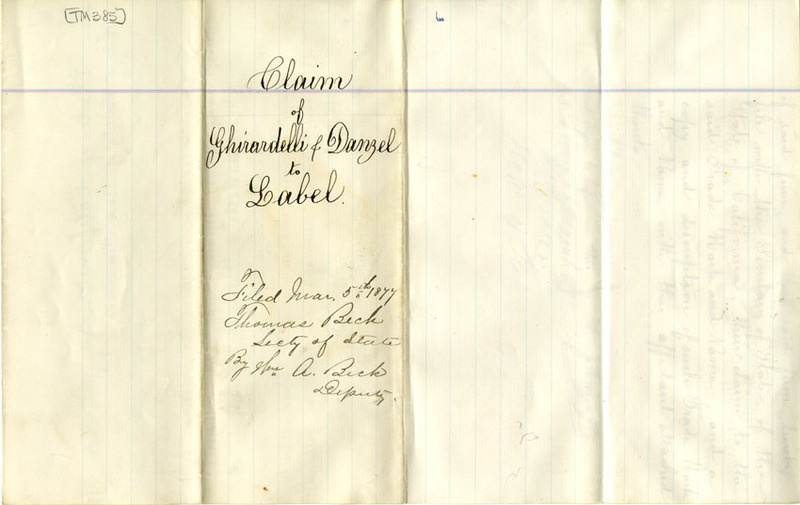 [TM385]
6
Claim
of
Ghirardelli & Danzel
to
Label.
Filed Mar. 5th 1877
Thomas Beck
Secty of State
By Wm A. Beck
Deputy.